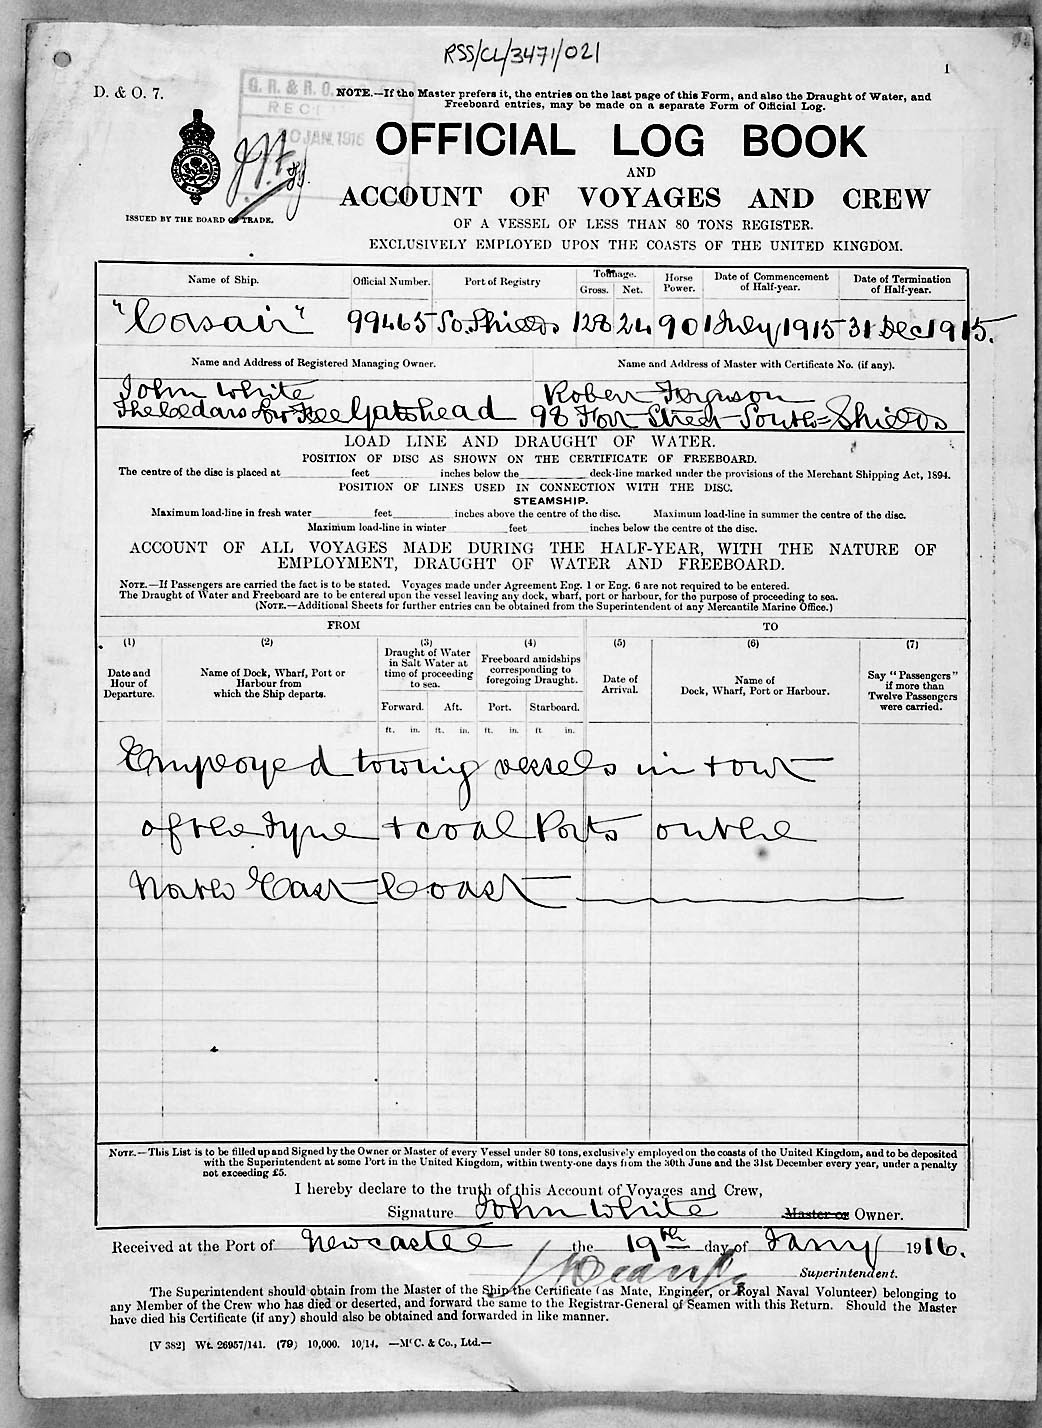 RSS/CL/3471/021
1
D. & O. 7.
G. R. & R. O.
REC
20 JAN. 1916
NOTE.—If the Master prefers it, the entries on the last page of this Form, and also the Draught of Water, and
Freeboard entries, may be made on a separate Form of Official Log.
OFFICIAL LOG BOOK
AND
ACCOUNT OF VOYAGES AND CREW
ISSUED BY THE BOARD OF TRADE.
OF A VESSEL OF LESS THAN 80 TONS REGISTER.
EXCLUSIVELY EMPLOYED UPON THE COASTS OF THE UNITED KINGDOM.
Name of Ship. Official Number. Port of Registry Tonnage. Gross. Net. Horse Power. Date of Commencement of Half-year. Date of Termination of Half-year.
"Cosair" 99465 So. Shields 128 24 90 1 July 1915 31 Dec 1915.
Name and Address of Registered Managing Owner. Name and Address of Master with Certificate No. (if any).
John White Robert Ferguson
The Cedars Low Fell Gatshead 98 Fort Street South=Shields
LOAD LINE AND DRAUGHT OF WATER.
POSITION OF DISC AS SHOWN ON THE CERTIFICATE OF FREEBOARD.
The centre of the disc is placed at feet inches below the deck-line marked under the provisions of the Merchant Shipping Act, 1894.
POSITION OF LINES USED IN CONNECTION WITH THE DISC.
STEAMSHIP.
Maximum load-line in fresh water feet inches above the centre of the disc. Maximum load-line in summer the centre of the disc.
Maximum load-line in winter feet inches below the centre of the disc.
ACCOUNT OF ALL VOYAGES MADE DURING THE HALF-YEAR, WITH THE NATURE OF
EMPLOYMENT, DRAUGHT OF WATER AND FREEBOARD.
NOTE.—If Passengers are carried the fact is to be stated. Voyages made under Agreement Eng. 1 or Eng. 6 are not required to be entered.
The Draught of Water and Freeboard are to be entered upon the vessel leaving any dock, wharf, port or harbour, for the purpose of proceeding to sea.
(NOTE.—Additional Sheets for further entries can be obtained from the Superintendent of any Mercantile Marine Office.)
FROM TO
(1) (2) (3) (4) (5) (6) (7)
Date and Hour of Departure. Name of Dock, Wharf, Port or Harbour from which the Ship departs. Draught of Water in Salt Water at time of proceeding to sea. Freeboard amidships corresponding to foregoing Draught. Date of Arrival. Name of Dock, Wharf, Port or Harbour. Say "Passengers" if more than Twelve Passengers were carried.
Forward. Aft. Port. Starboard.
ft. in. ft. in. ft. in. ft in.
Employed towing vessels in + out
of the Tyne + coal Ports on the
North East Coast
NOTE.—This List is to be filled up and Signed by the Owner or Master of every Vessel under 80 tons, exclusively employed on the coasts of the United Kingdom, and to be deposited
with the Superintendent at some Port in the United Kingdom, within twenty-one days from the 30th June and the 31st December every year, under a penalty
not exceeding £5.
I hereby declare to the truth of this Account of Voyages and Crew,
Signature John White Master or Owner.
Received at the Port of Newcastle the 19th day of Janry 1916.
Superintendent.
The Superintendent should obtain from the Master of the Ship the Certificate (as Mate, Engineer, or Royal Naval Volunteer) belonging to
any Member of the Crew who has died or deserted, and forward the same to the Registrar-General of Seamen with this Return. Should the Master
have died his Certificate (if any) should also be obtained and forwarded in like manner.
[V 382] Wt. 26957/141. (79) 10,000. 10/14. —McC. & Co., Ltd.—